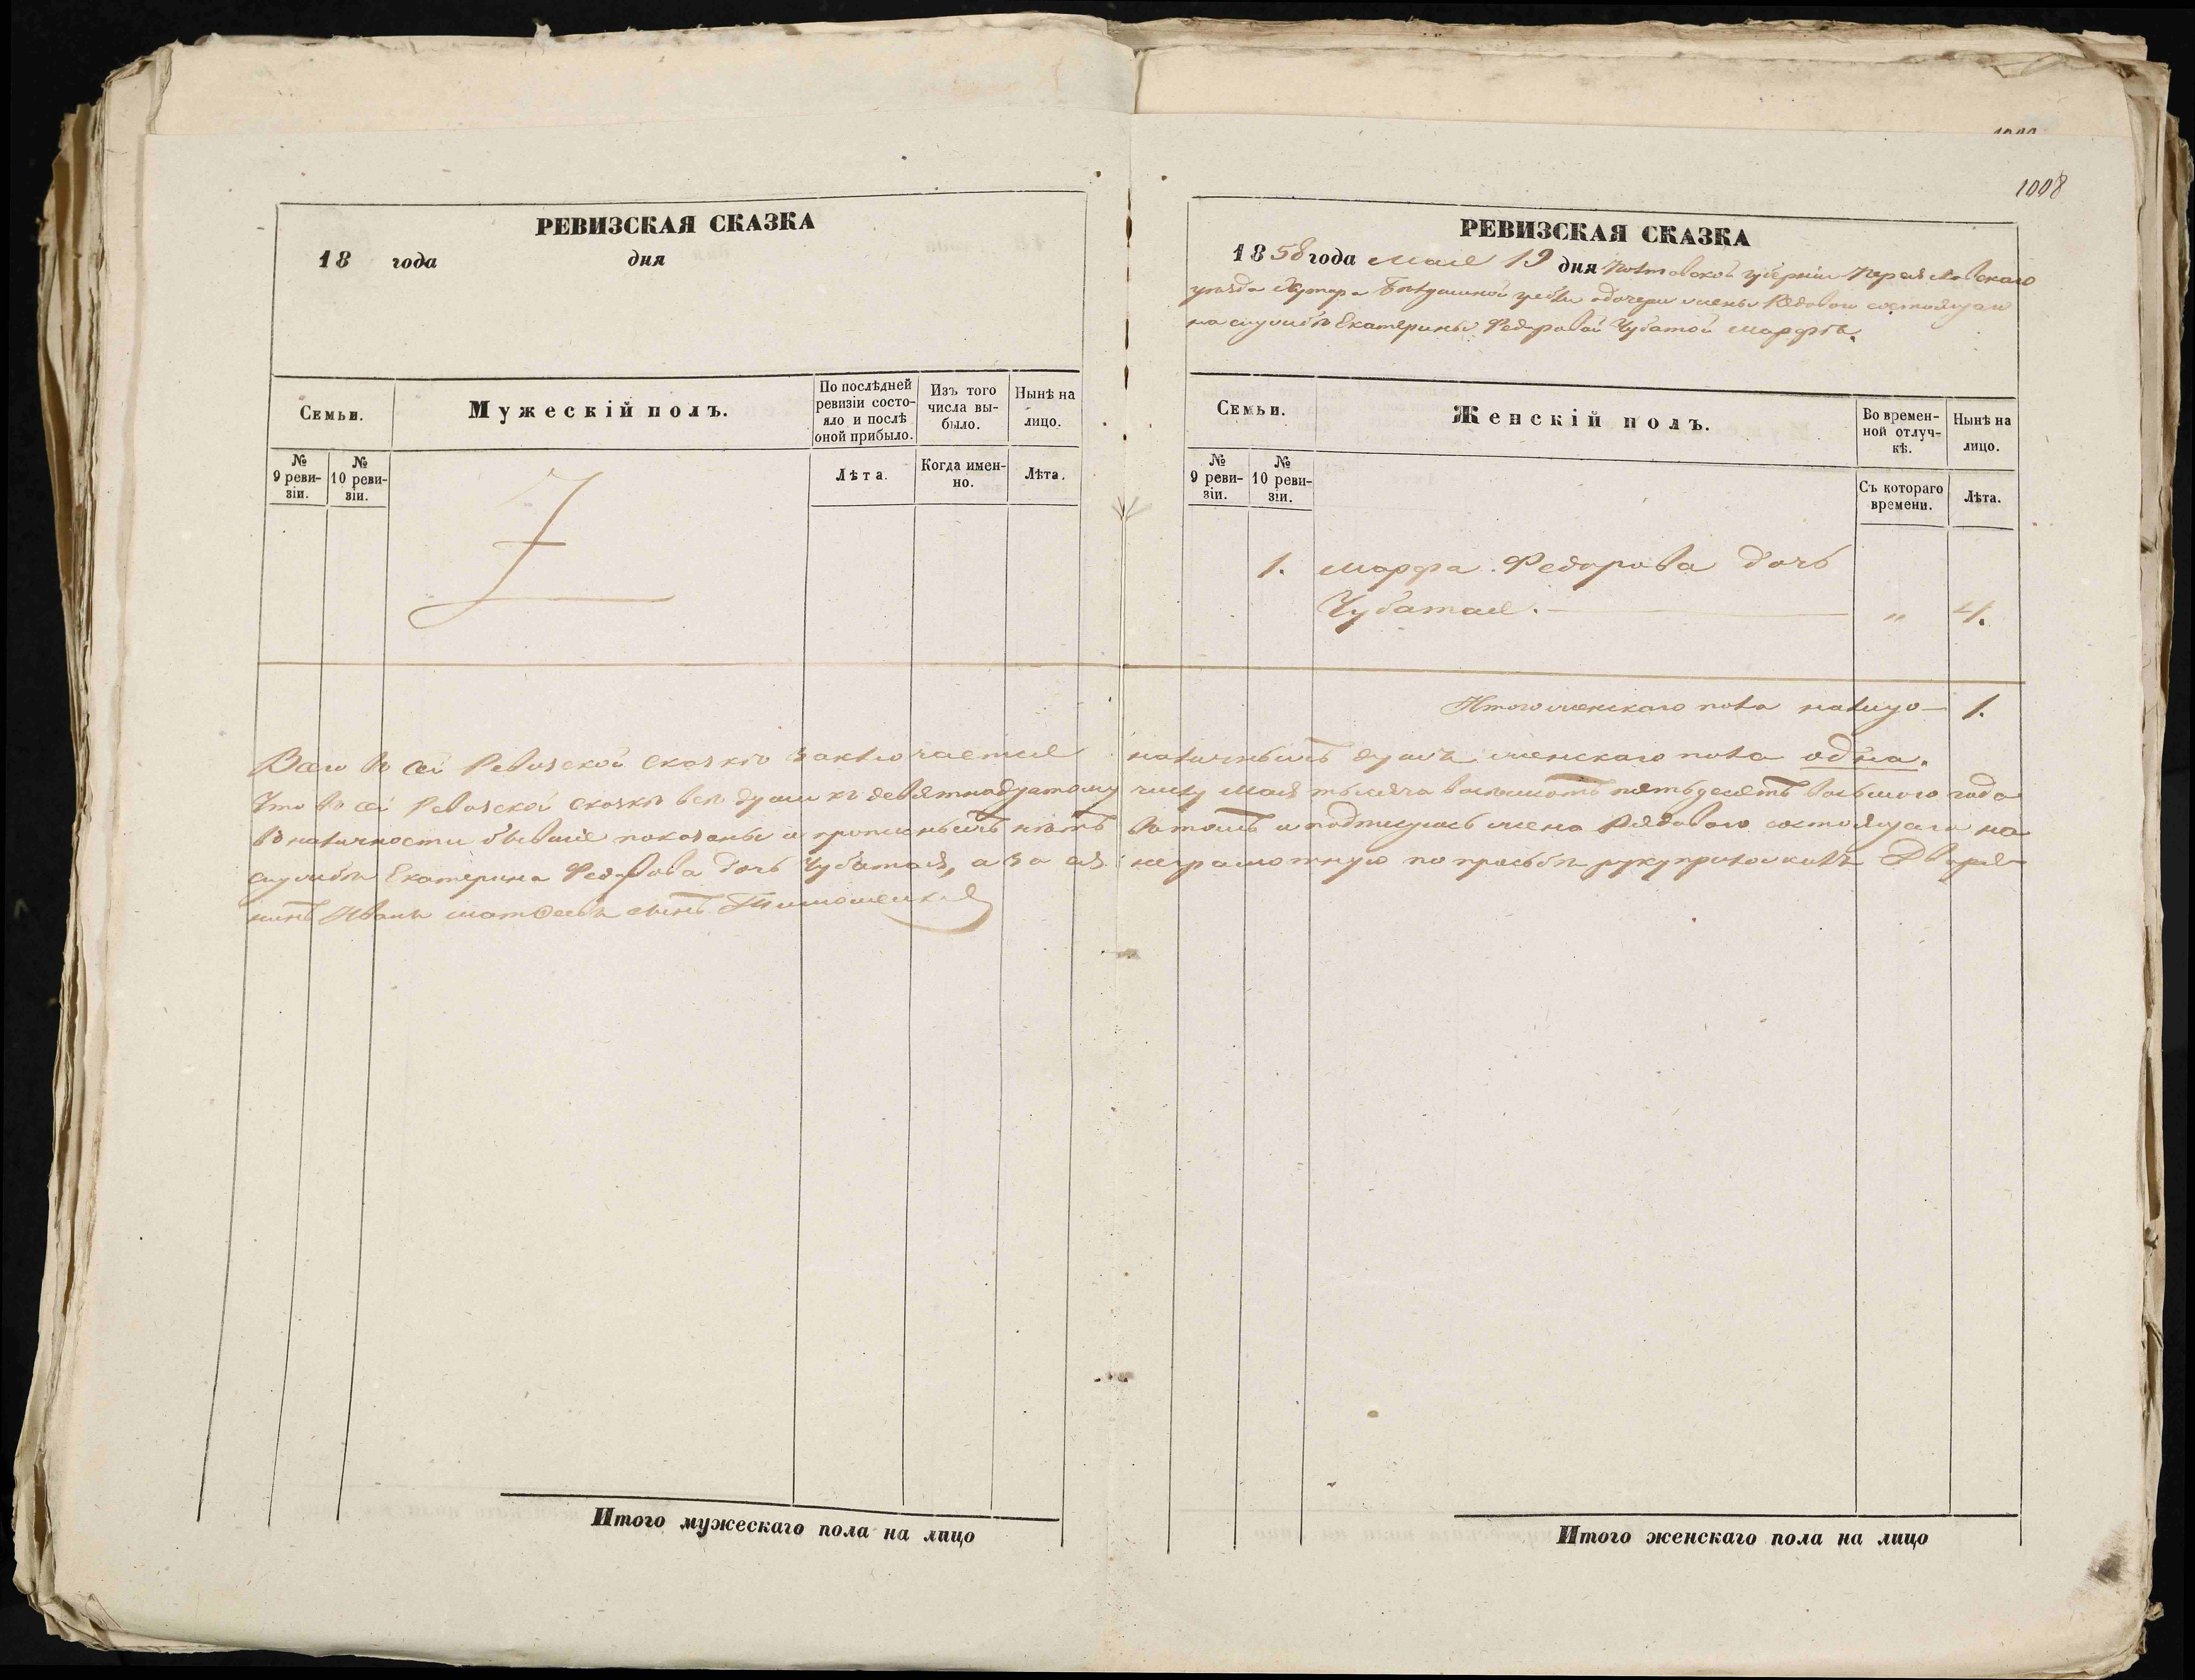 1008
РЕВИЗСКАЯ СКАЗКА
18 года дня
Семьи.
Мужескій полъ.
По послѣдней ревизіи состояло и послѣ оной прибыло.
Изъ того числа выбыло.
Нынѣ на лицо.
№ 9 ревизіи.
№ 10 ревизіи.
Лѣта.
Когда именно.
Лѣта.
РЕВИЗСКАЯ СКАЗКА
1858 года Мая 19 дня Полтавской губерніи Переяславскаго
уѣзда Хутора гребли о дочери жены Рядоваго состоящаго
на службѣ Екатерины Федоровой Чубатой Марфѣ.
Семьи.
Женскій полъ.
Во временной отлучкѣ.
Нынѣ на лицо.
№ 9 ревизіи.
№ 10 ревизіи.
Съ котораго времени.
Лѣта.
1. Марфа Федорова дочь
Чубатая. — " 4.
Итого женскаго пола налицо — 1.
Всего въ сей Ревизской Сказкѣ заключается наличныхъ душъ женскаго пола одна.
Что въ сей Ревизской сказкѣ всѣ души къ девятнадцатому числу Мая тысяча восемьсотъ пятьдесятъ восьмого года
въ наличности бывшіе показаны и прописныхъ нѣтъ въ томъ и подписуюсь жена Рядоваго состоящаго на
службѣ Екатерина Федорова дочь Чубатая, а за ея неграмотную по прозьбѣ руку приложилъ Дворя-
нинъ Иванъ Матѳеевъ сынъ Тимошенко
Итого мужескаго пола на лицо
Итого женскаго пола на лицо